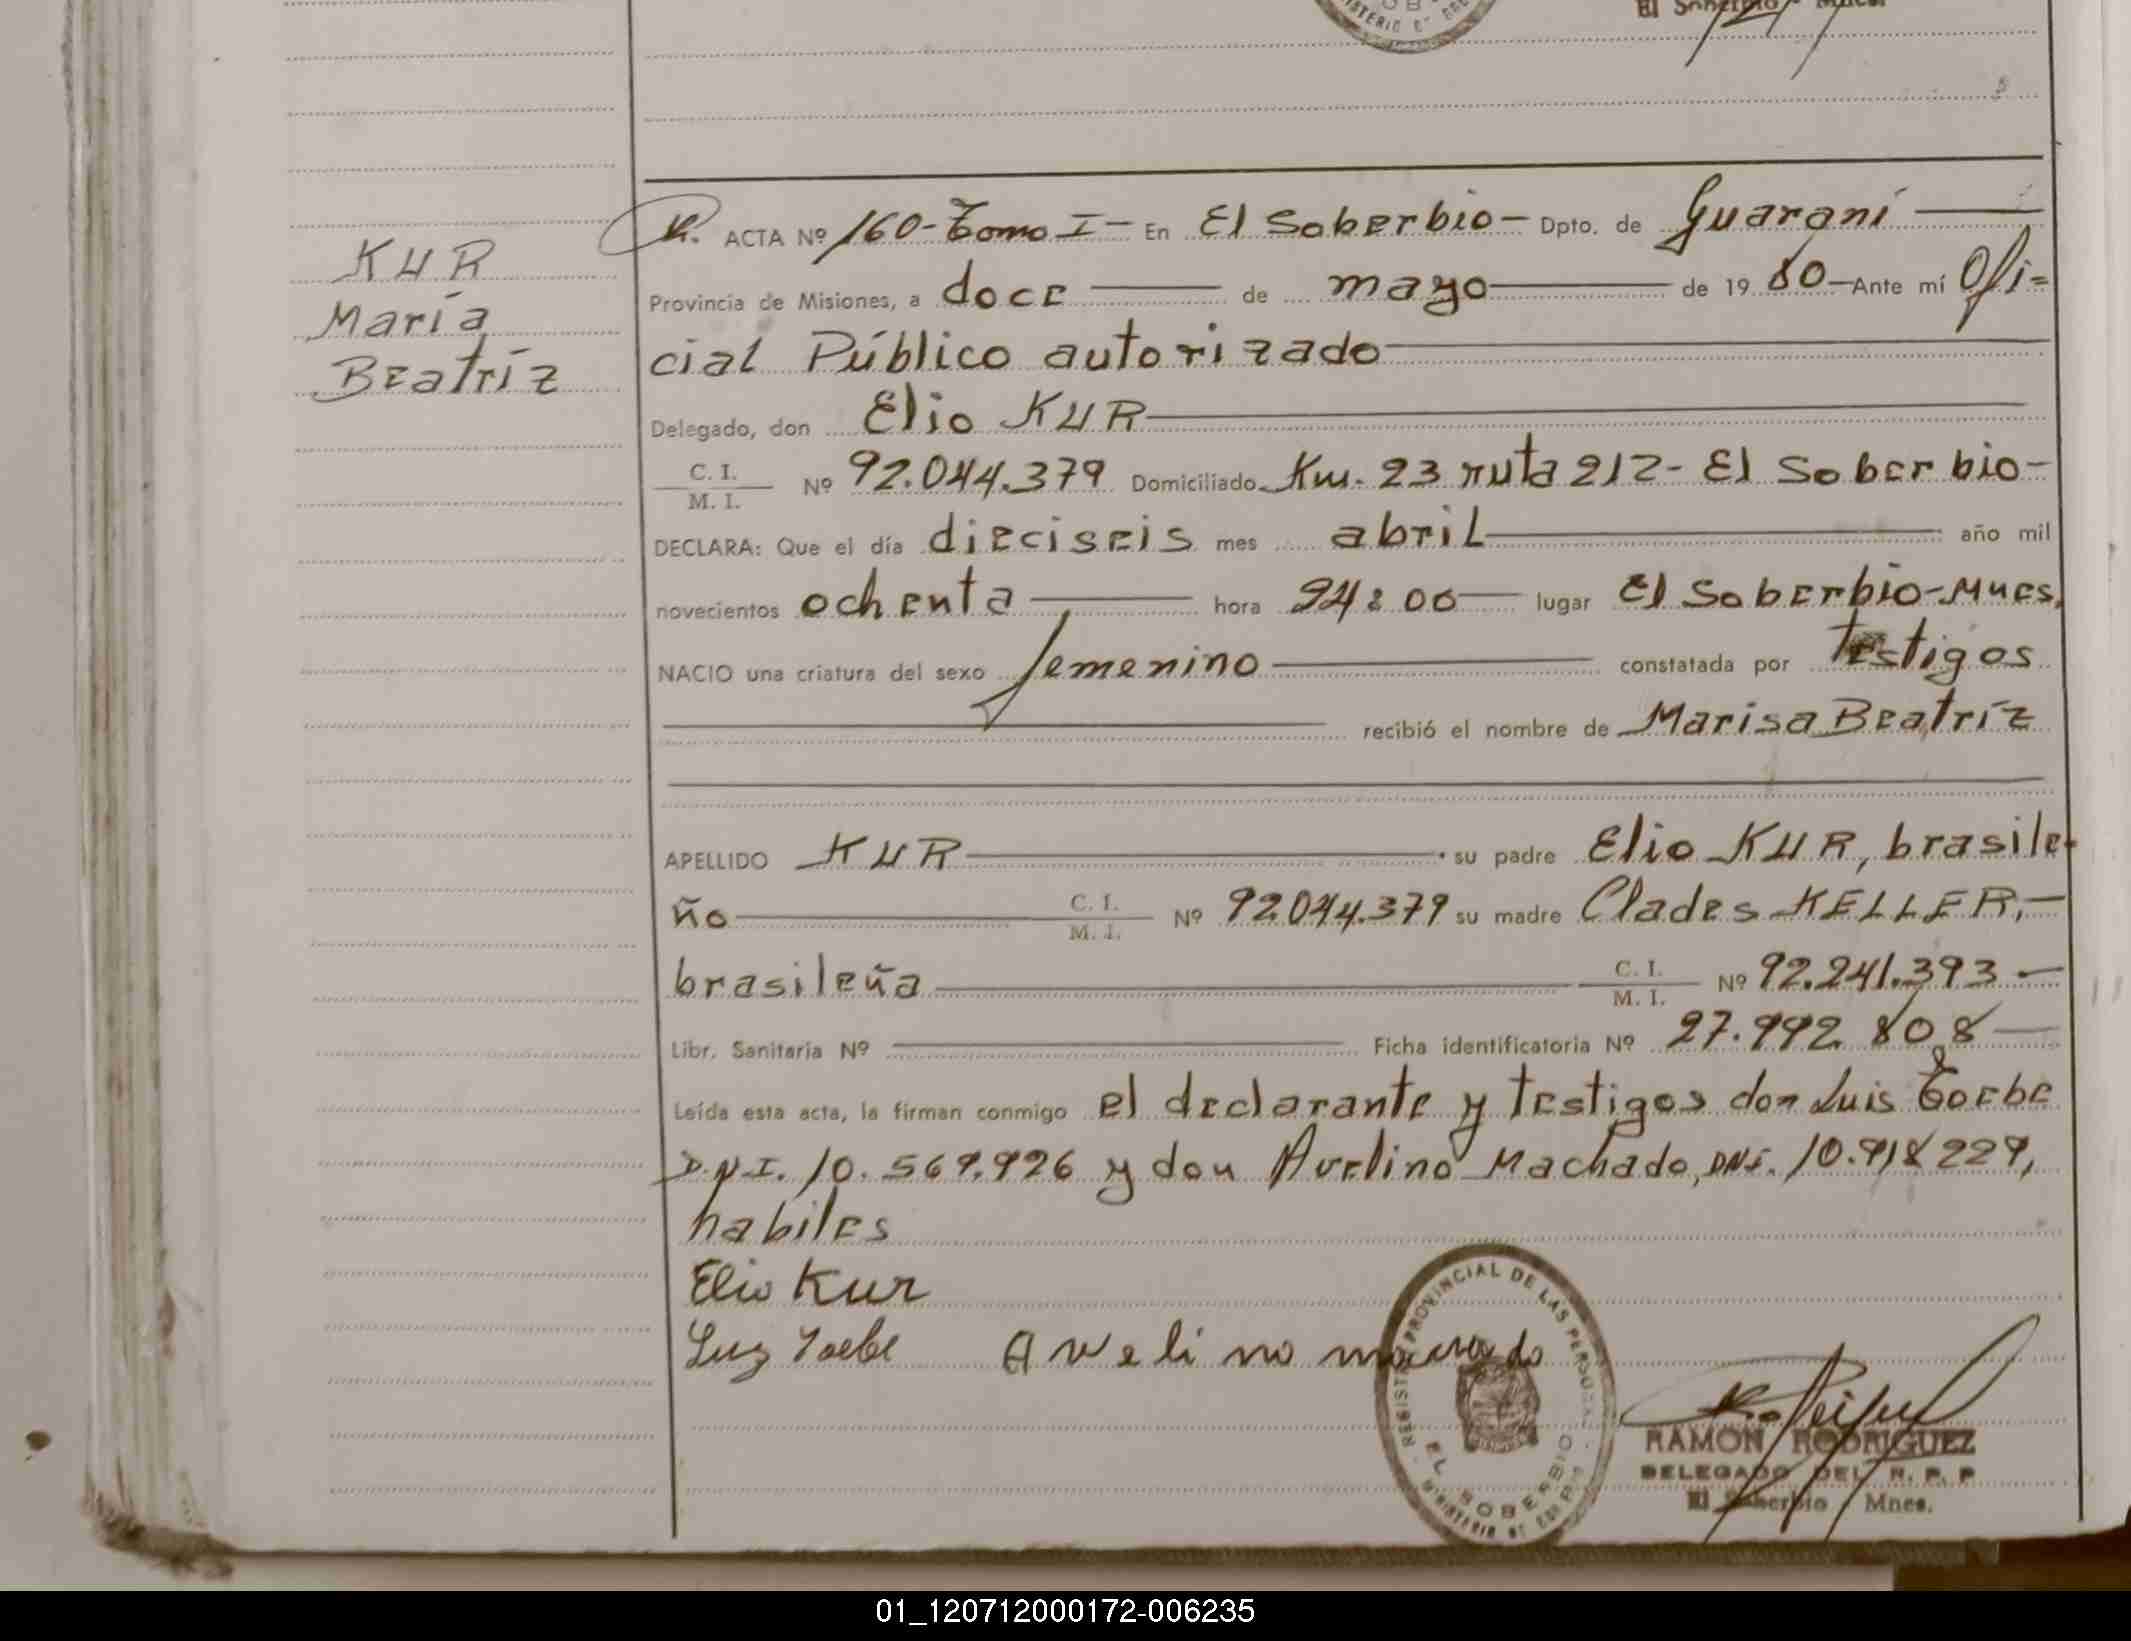 El Soberbio Mnes.
KUR
María
Beatríz
R. ACTA Nº 160-Tomo I- En El Soberbio- Dpto. de Guaraní
Provincia de Misiones, a doce de mayo de 1980-Ante mí Ofi=
cial Público autorizado
Delegado, don Elio KUR
C. I.
M. I.
Nº 92.044.379 Domiciliado Km. 23 ruta 212- El Soberbio-
DECLARA: Que el día dieciseis mes abril año mil
novecientos ochenta hora 24:00 lugar El Soberbio-Mnes.
NACIO una criatura del sexo femenino constatada por testigos
recibió el nombre de Marisa Beatríz
APELLIDO KUR su padre Elio KUR, brasile-
ño C. I. M. I. Nº 92.044.379 su madre Clades KELLER,-
brasileña C. I. M. I. Nº 92.241.393.-
Libr. Sanitaria Nº Ficha identificatoria Nº 27.992.808
Leída esta acta, la firman conmigo el declarante y testigos don Luis Toebe
D.N.I. 10.569.926 y don Avelino Machado, DNI. 10.918229,
habiles
Elio Kur
Luiz Toebe Avelino
REGISTRO PROVINCIAL DE LAS PERSONAS
EL SOBERBIO
RAMON RODRIGUEZ
DELEGADO DEL R. P. P
El Soberbio Mnes.
01_120712000172-006235